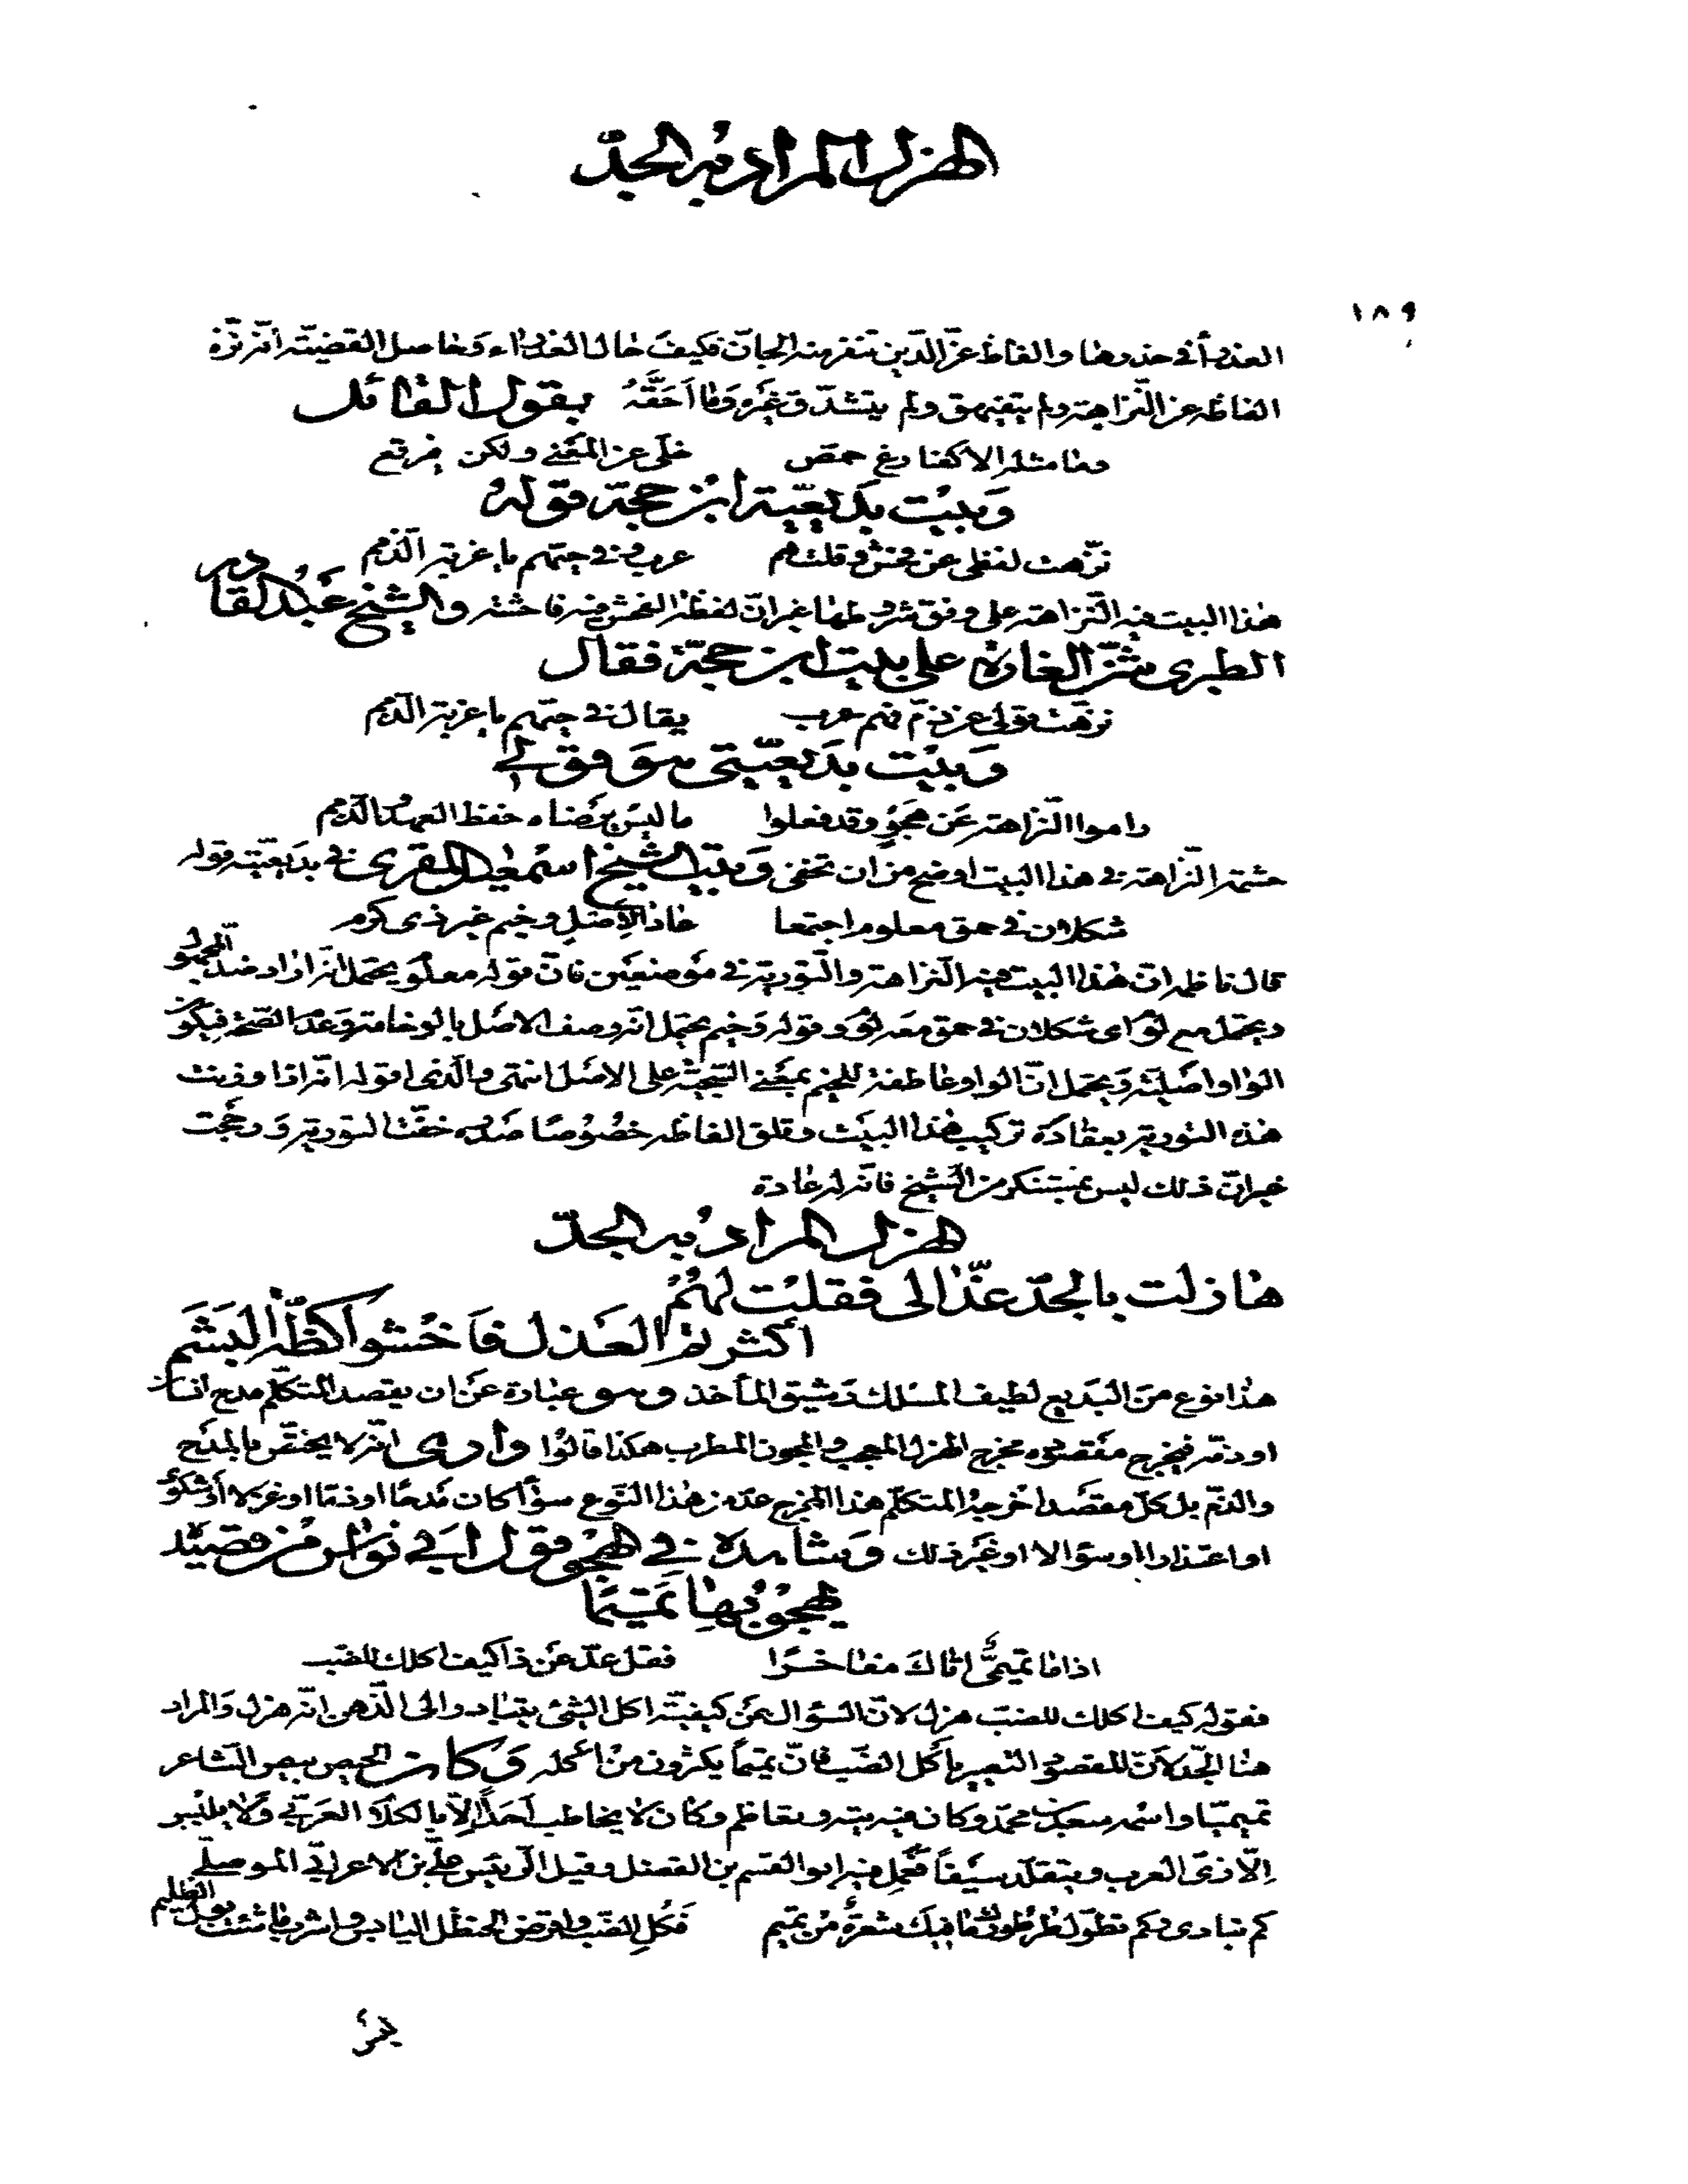 الهزل المراد به الجدّ
١٨٩
العذرآء في خدرها والفاظ عز الدين تنفر منه الجانّ فكيف حال العذراء وحاصل القضيّة انّه نزّه
الفاظه عن النّزاهة ولم يتفيهق ولم يتشدّق غيره وما احقّهُ بقول القائل
وما مثله الا كفارغ حمّص خلّى عن المعْنى ولكن يفرقع
وَبيْت بَديعيّة ابْن حجّة قوله
نزّهت لفظى عن فحش وقلت هم عرب وفي حيّهم يا غربة الذّمم
هذا البيت فيه النّزاهة على وفق شروطها غير انّ لفظة الفحش فيه فاحشة والشيخ عَبْد القادر
الطبرى شنّ الغارة على بيت ابن حجّة فقال
نزّهت قولى عن ذمّ فهم عرب يقال في حيّهم يا غربة الذّمم
وَبيْت بَديعيّتى هوَ قولى
راموا النّزاهة عَن هجْوٍ وقد فعلوا ما ليْس يرْضاه حفظ العهْد والذّمم
حشمة النّزاهة في هذا البيت اوضح من ان تخفى وَبيْت الشيخ اسْمعيل المقرى في بدَيعيّته قوله
شكلان في حمق معلوم اجتمعا هاذا الاصْلِ وخيم غير ذى كرم
قال ناظمه انّ هٰذا البيت فيه النّزاهة والتّورية في موْضعيْن فانّ قوله معلوم يحتمل انّه اراد ضدّ المجهو
ويحتمل مع لؤم اى شكلان في حمق معه لؤم وقوله وَخيم يحتمل انّه وصف الاصْل بالوخامة وعدم الصّحّة فيكون
الواو اصْليّة وَيحتمل انّ الواو عاطفة للخيم بمعْنى السّجيّة على الاصْل انتهى والّذى اقوله انّه اذا وزنت
هذه التورية بعقادة تركيب هٰذا البيْت وقلق الفاظه خصُوْصًا صَدره خفّت التورية وَرجحت
غير انّ ذلك ليس بمستنكر من الشيخ فانّه له عادة
هزل المراد به الجدّ
هازلت بالجدّ عذّالى فقلت لهُمُ
أكثرتم العَذل فاخشوا كظّة البَشَم
هٰذا نوع من البَديع لطيف المسْلك رَشيق المأخذ وهو عبارة عَن ان يقصد المتكلّم مدح انسان
او ذمّه فيخرج مقصوده مخرج الهزل المعجب والمجون المطرب هكذا قالوا وارى انّه لا يختصّ بالمدْح
والذّم بل كلّ مقصَد اخْرجهُ المتكلّم هذا المخرج عدّ من هٰذا النّوع سوآءً كان مَدحًا او ذمّا او غزلا او شكوى
او اعتذارا او سؤالا او غير ذلك وَشاهده في الهجْو قول ابَى نوَاس مْن قصيْدة
يهجوْ بهاِ تميْمًا
اذا ما تميمىٌّ اتاكَ مفاخرًا فقل عدّ عَن ذا كيف اكلك للضّب
فقوله كيف اكلك للضبّ هزل لانّ السّؤال عَن كيفيّة اكل الشئ يتبادر الى الذّهن انّه هزل وَالمراد
هنا الجّد لانّ المقصود التعيير باكْل الضّبّ فانّ تميماً يكثرون منْ اكله وَكان الحيص بيص الشاعر
تميميّا واسمه سعد بن محمّد وكان فيه تيه وتعاظم وكان لا يخاطب احَداً الّا بالكلام العَربّي وَلا يلبس
اِلّا زىّ العرب ويتقلّد سيْفاً فعَمل فيه ابو القسم بن الفضل وقيل الرّئيْس علّى بن الاعرابّي الموصلّى
كم تبادى وكم تطوّل طرطورك ما فيك شعرةٌ منْ تميم فكُلِ الضّبّ واقرض الحنظل اليابس واشرب ما شئت بوْل الظّليم